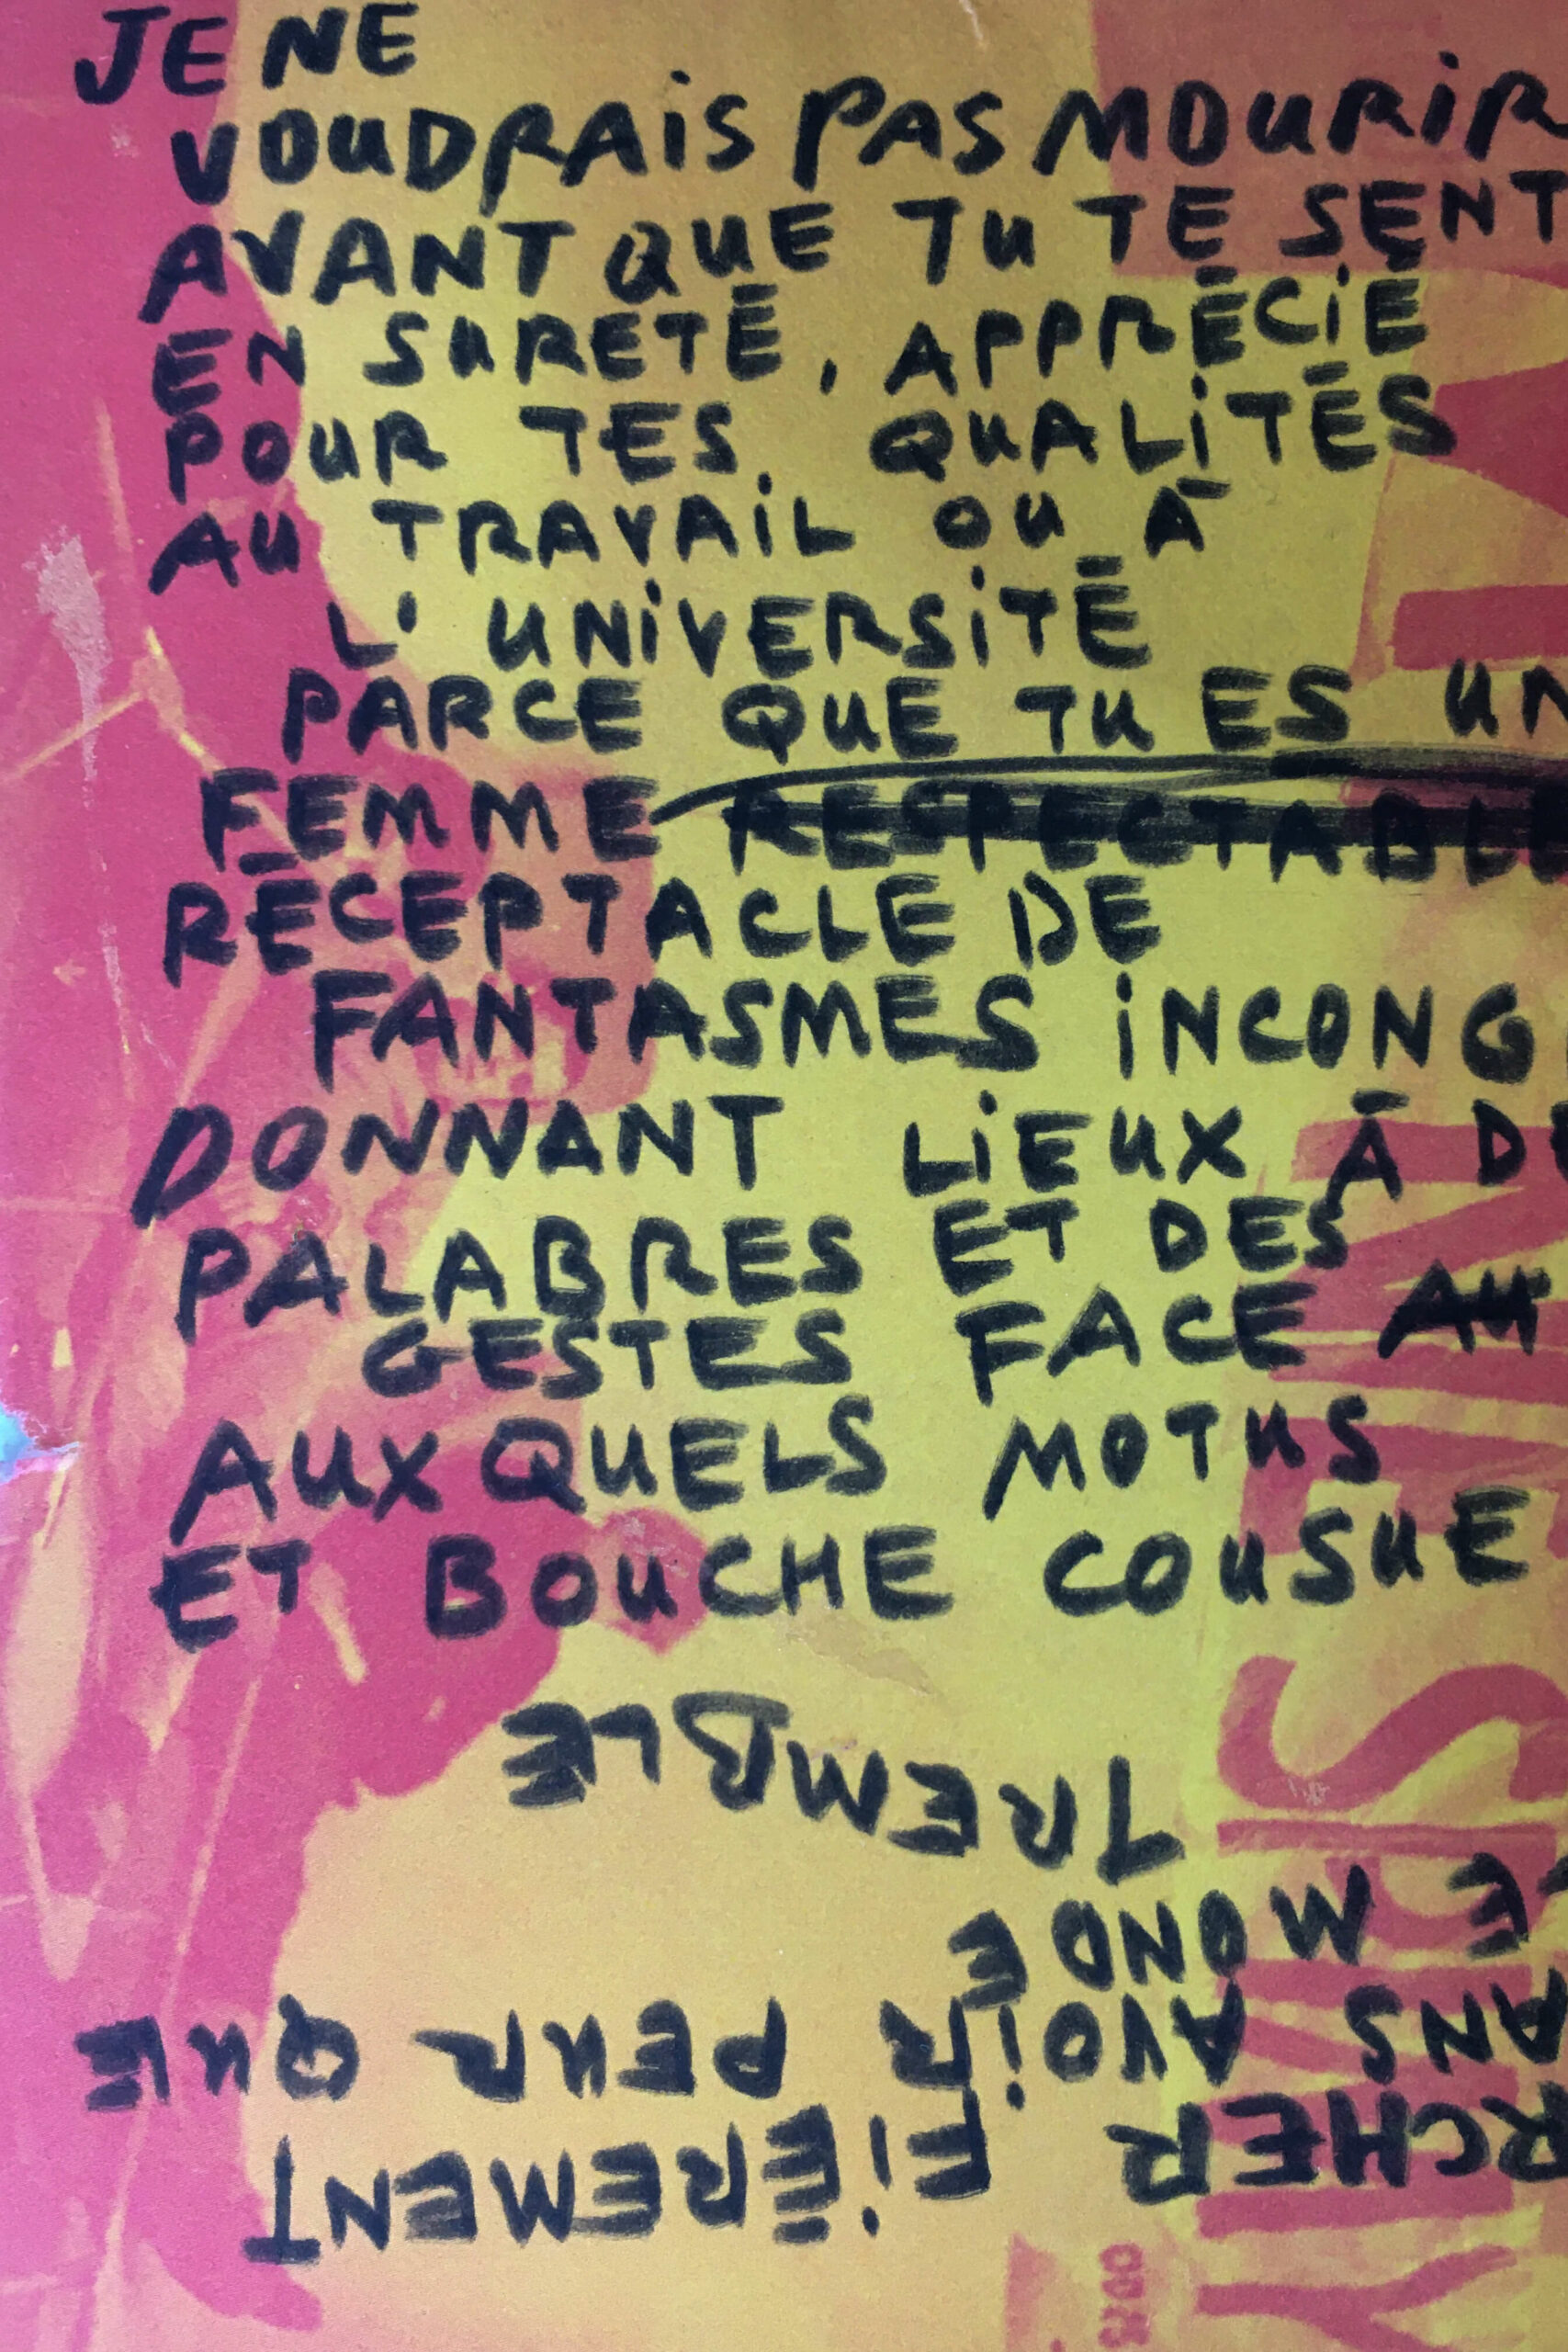 JE NE
VOUDRAIS PAS MOURIR
AVANT QUE TU TE SENT
EN SURETĒ, APPRĒCIĒ
POUR TES QUALITĒS
AU TRAVAIL OU Ā
L' UNIVERSITĒ
PARCE QUE TU ES UN
FEMME RESPECTABLE
RĒCEPTACLE DE
FANTASMES INCONG
DONNANT LIEUX Ā DE
PALABRES ET DES
GESTES FACE AU
AUXQUELS MOTUS
ET BOUCHE COUSUE
RCHER FIĒREMENT
ANS AVOIR PEUR QUE
E MONDE
TREMBLE